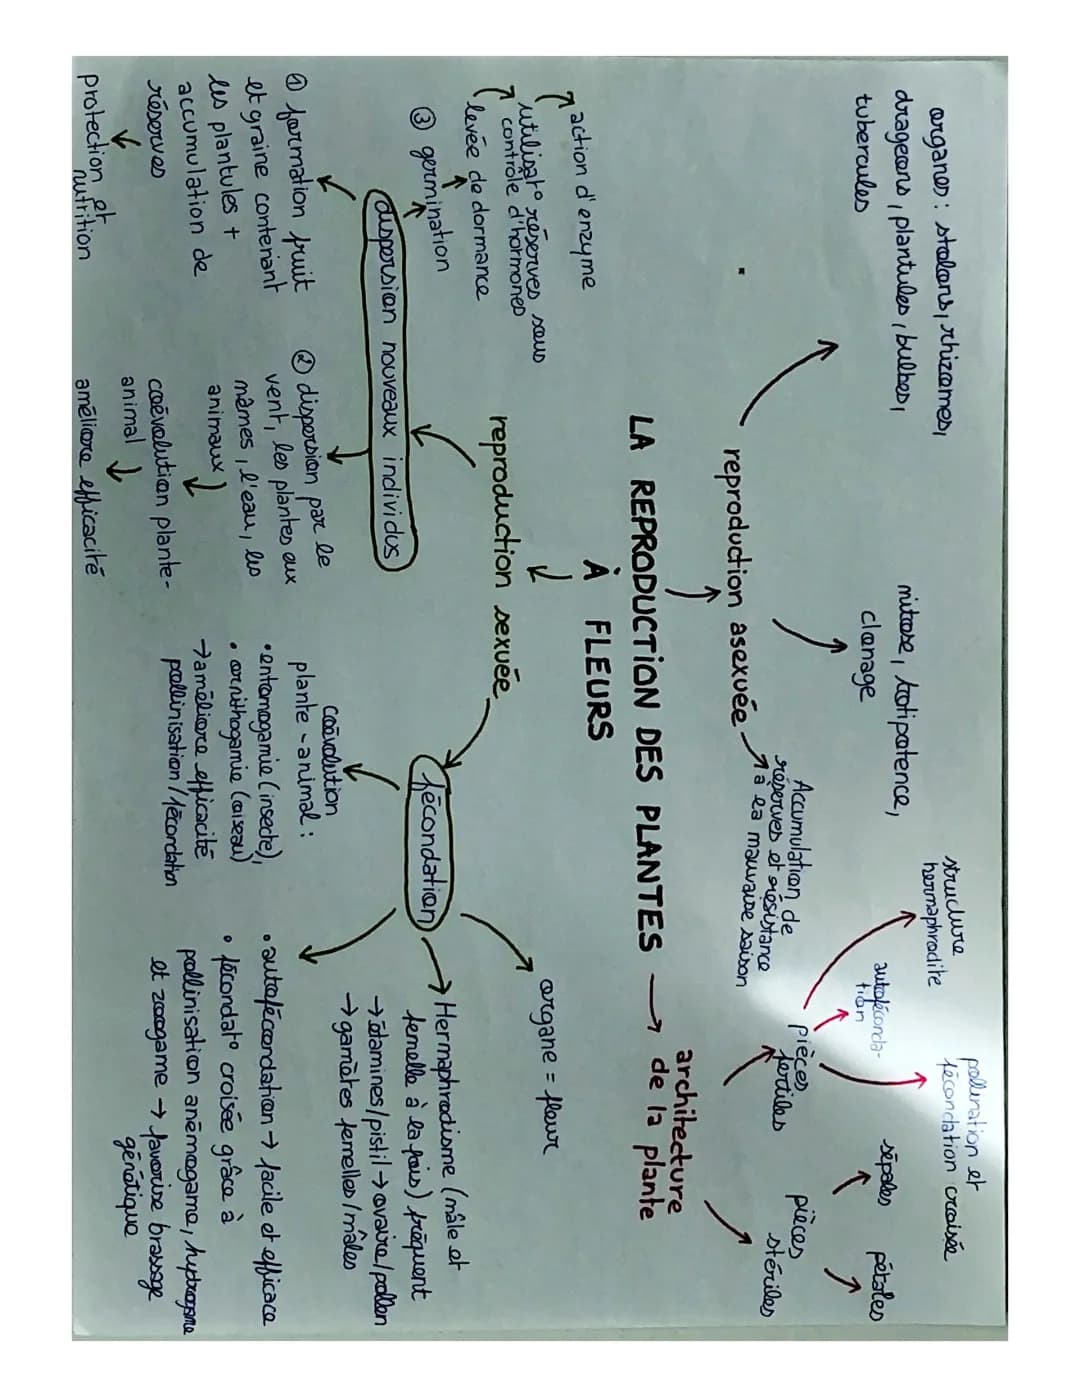 organes : stolons, rhizomes,
drageons, plantules, bulbes,
tubercules
mitose, totipotence,
clonage
structure
hermaphrodite
autoféconda-
tion
pollination et
fécondation croisée
sépales
pétales
pièces
fertiles
pièces
stériles
Accumulation de
réserves et résistance
à la mauvaise saison
reproduction asexuée
LA REPRODUCTION DES PLANTES
À FLEURS
architecture
de la plante
reproduction sexuée
action d'enzyme
utilisat° réserves sous
contrôle d'hormones
levée de dormance
③ germination
dispersion nouveaux individus
① formation fruit
et graine contenant
les plantules +
accumulation de
réserves
protection et
nutrition
② dispersion par le
vent, les plantes aux
mêmes, l'eau, les
animaux)
coévolution plante-
animal
améliore efficacité
fécondation
organe = fleur
→ Hermaphrodisme (mâle et
femelle à la fois) fréquent
→ étamines/pistil → ovaire/pollen
→ gamètes femelles/mâles
coévolution
plante-animal :
• entomogamie (insecte),
• ornithogamie (oiseau)
→ améliore efficacité
pollinisation/fécondation
• autofécondation → facile et efficace
• fécondat° croisée grâce à
pollinisation anémogame, hydrogame
et zoogame → favorise brassage
génétique